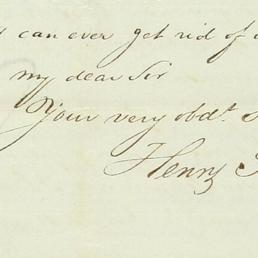 I can ever get rid of
my dear Sir
Your very obdt.
Henry